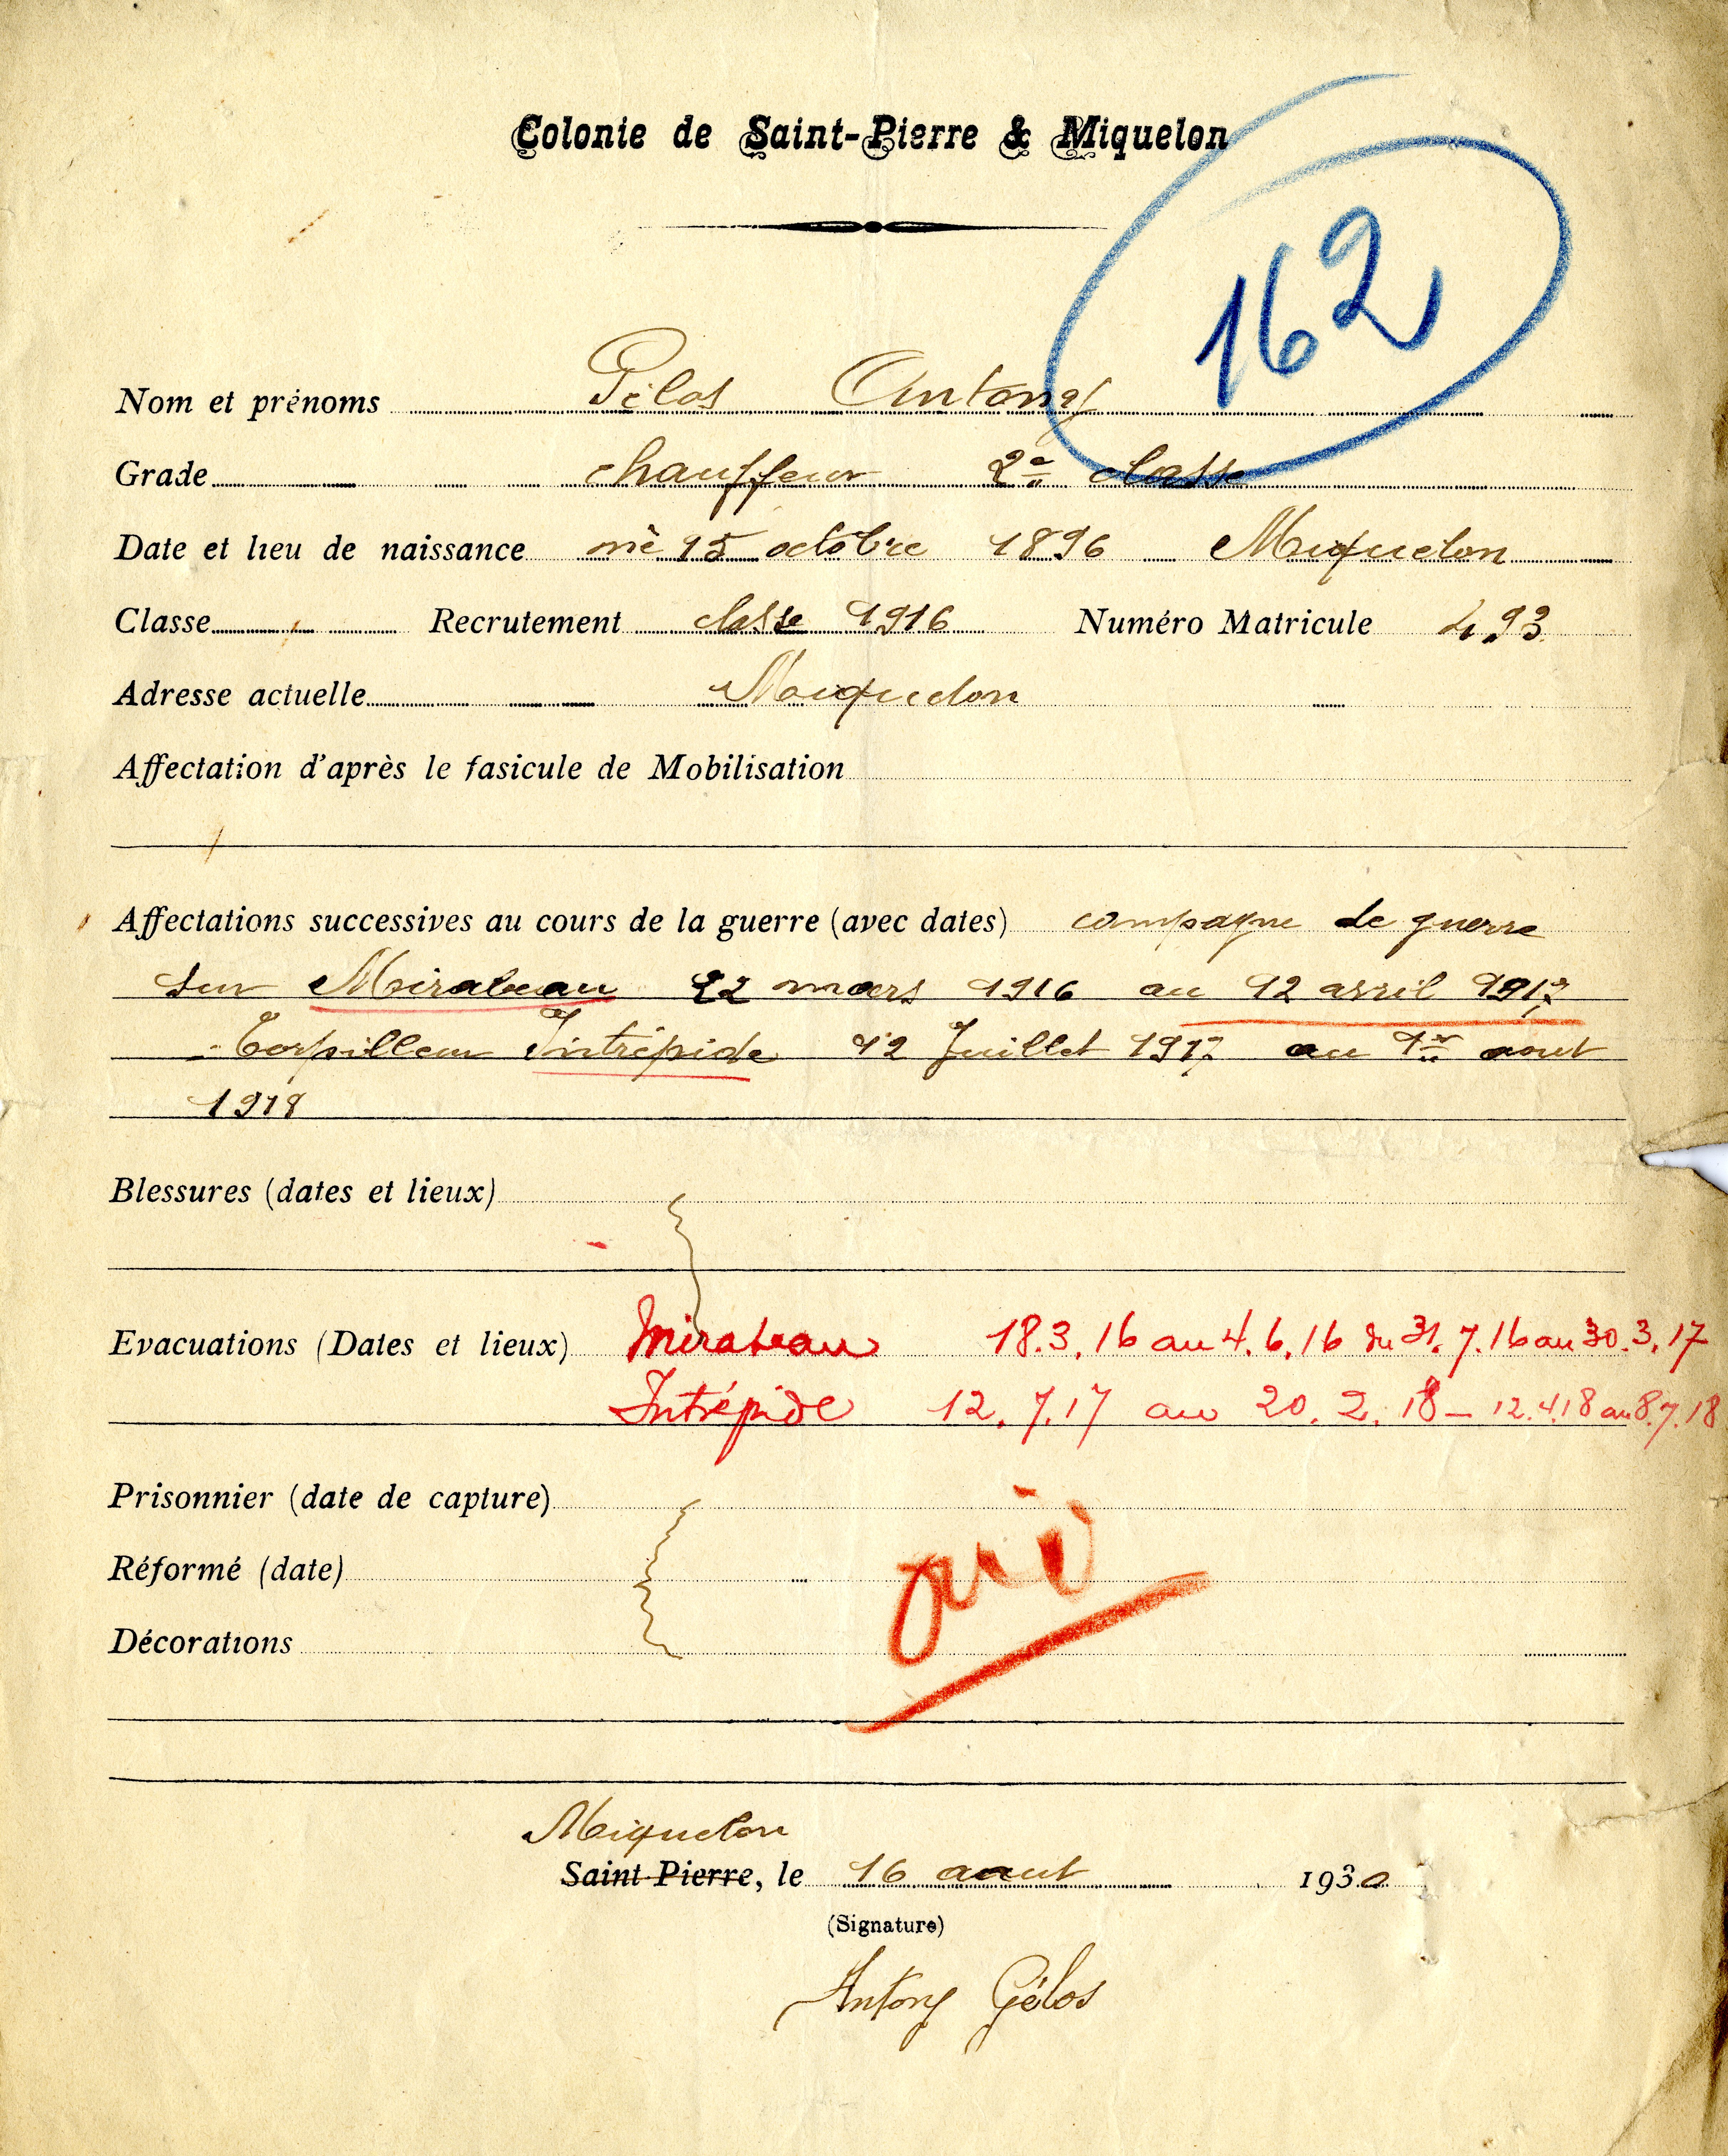 Colonie de Saint-Pierre & Miquelon
162
Nom et prénoms Gélos Antony
Grade chauffeur 2e classe
Date et lieu de naissance né 15 octobre 1896 Miquelon
Classe Recrutement classe 1916 Numéro Matricule 493
Adresse actuelle Miquelon
Affectation d'après le fasicule de Mobilisation
Affectations successives au cours de la guerre (avec dates) campagne de guerre
sur Mirabeau 22 mars 1916 au 12 avril 1917
Torpilleur Intrépide 12 Juillet 1917 au 1er aout
1918
Blessures (dates et lieux)
Evacuations (Dates et lieux) Mirabeau 18.3.16 au 4.6.16 du 31.7.16 au 30.3.17
Intrépide 12.7.17 au 20.2.18 – 12.4.18 au 8.7.18
Prisonnier (date de capture)
oui
Réformé (date)
Décorations
Miquelon
Saint-Pierre, le 16 aout 1930
(Signature)
Antony Gélos